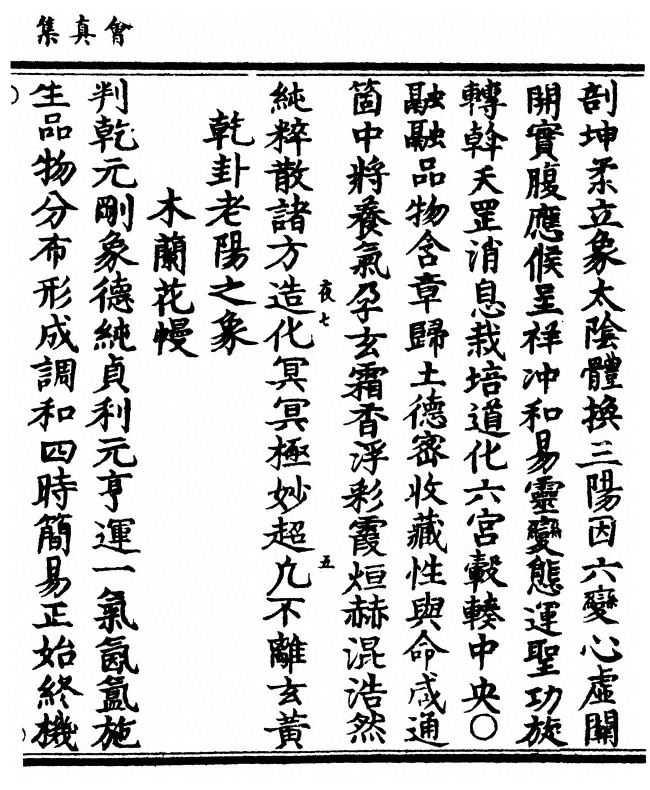 會真集
剖坤柔立象太陰體換三陽因六變心虛關
開實腹應候呈祥冲和易靈變態運聖功旋
轉斡天罡消息栽培道化六宮轂輳中央〇
融融品物含章歸土德密收藏性與命咸通
箇中將養氣孕玄霜香浮彩霞烜赫混浩然
純粹散諸方造化冥冥極妙超凡不離玄黃
夜七
五
乾卦老陽之象
木蘭花慢
判乾元剛象德純貞利元亨運一氣氤氳施
生品物分布形成調和四時簡易正始終機